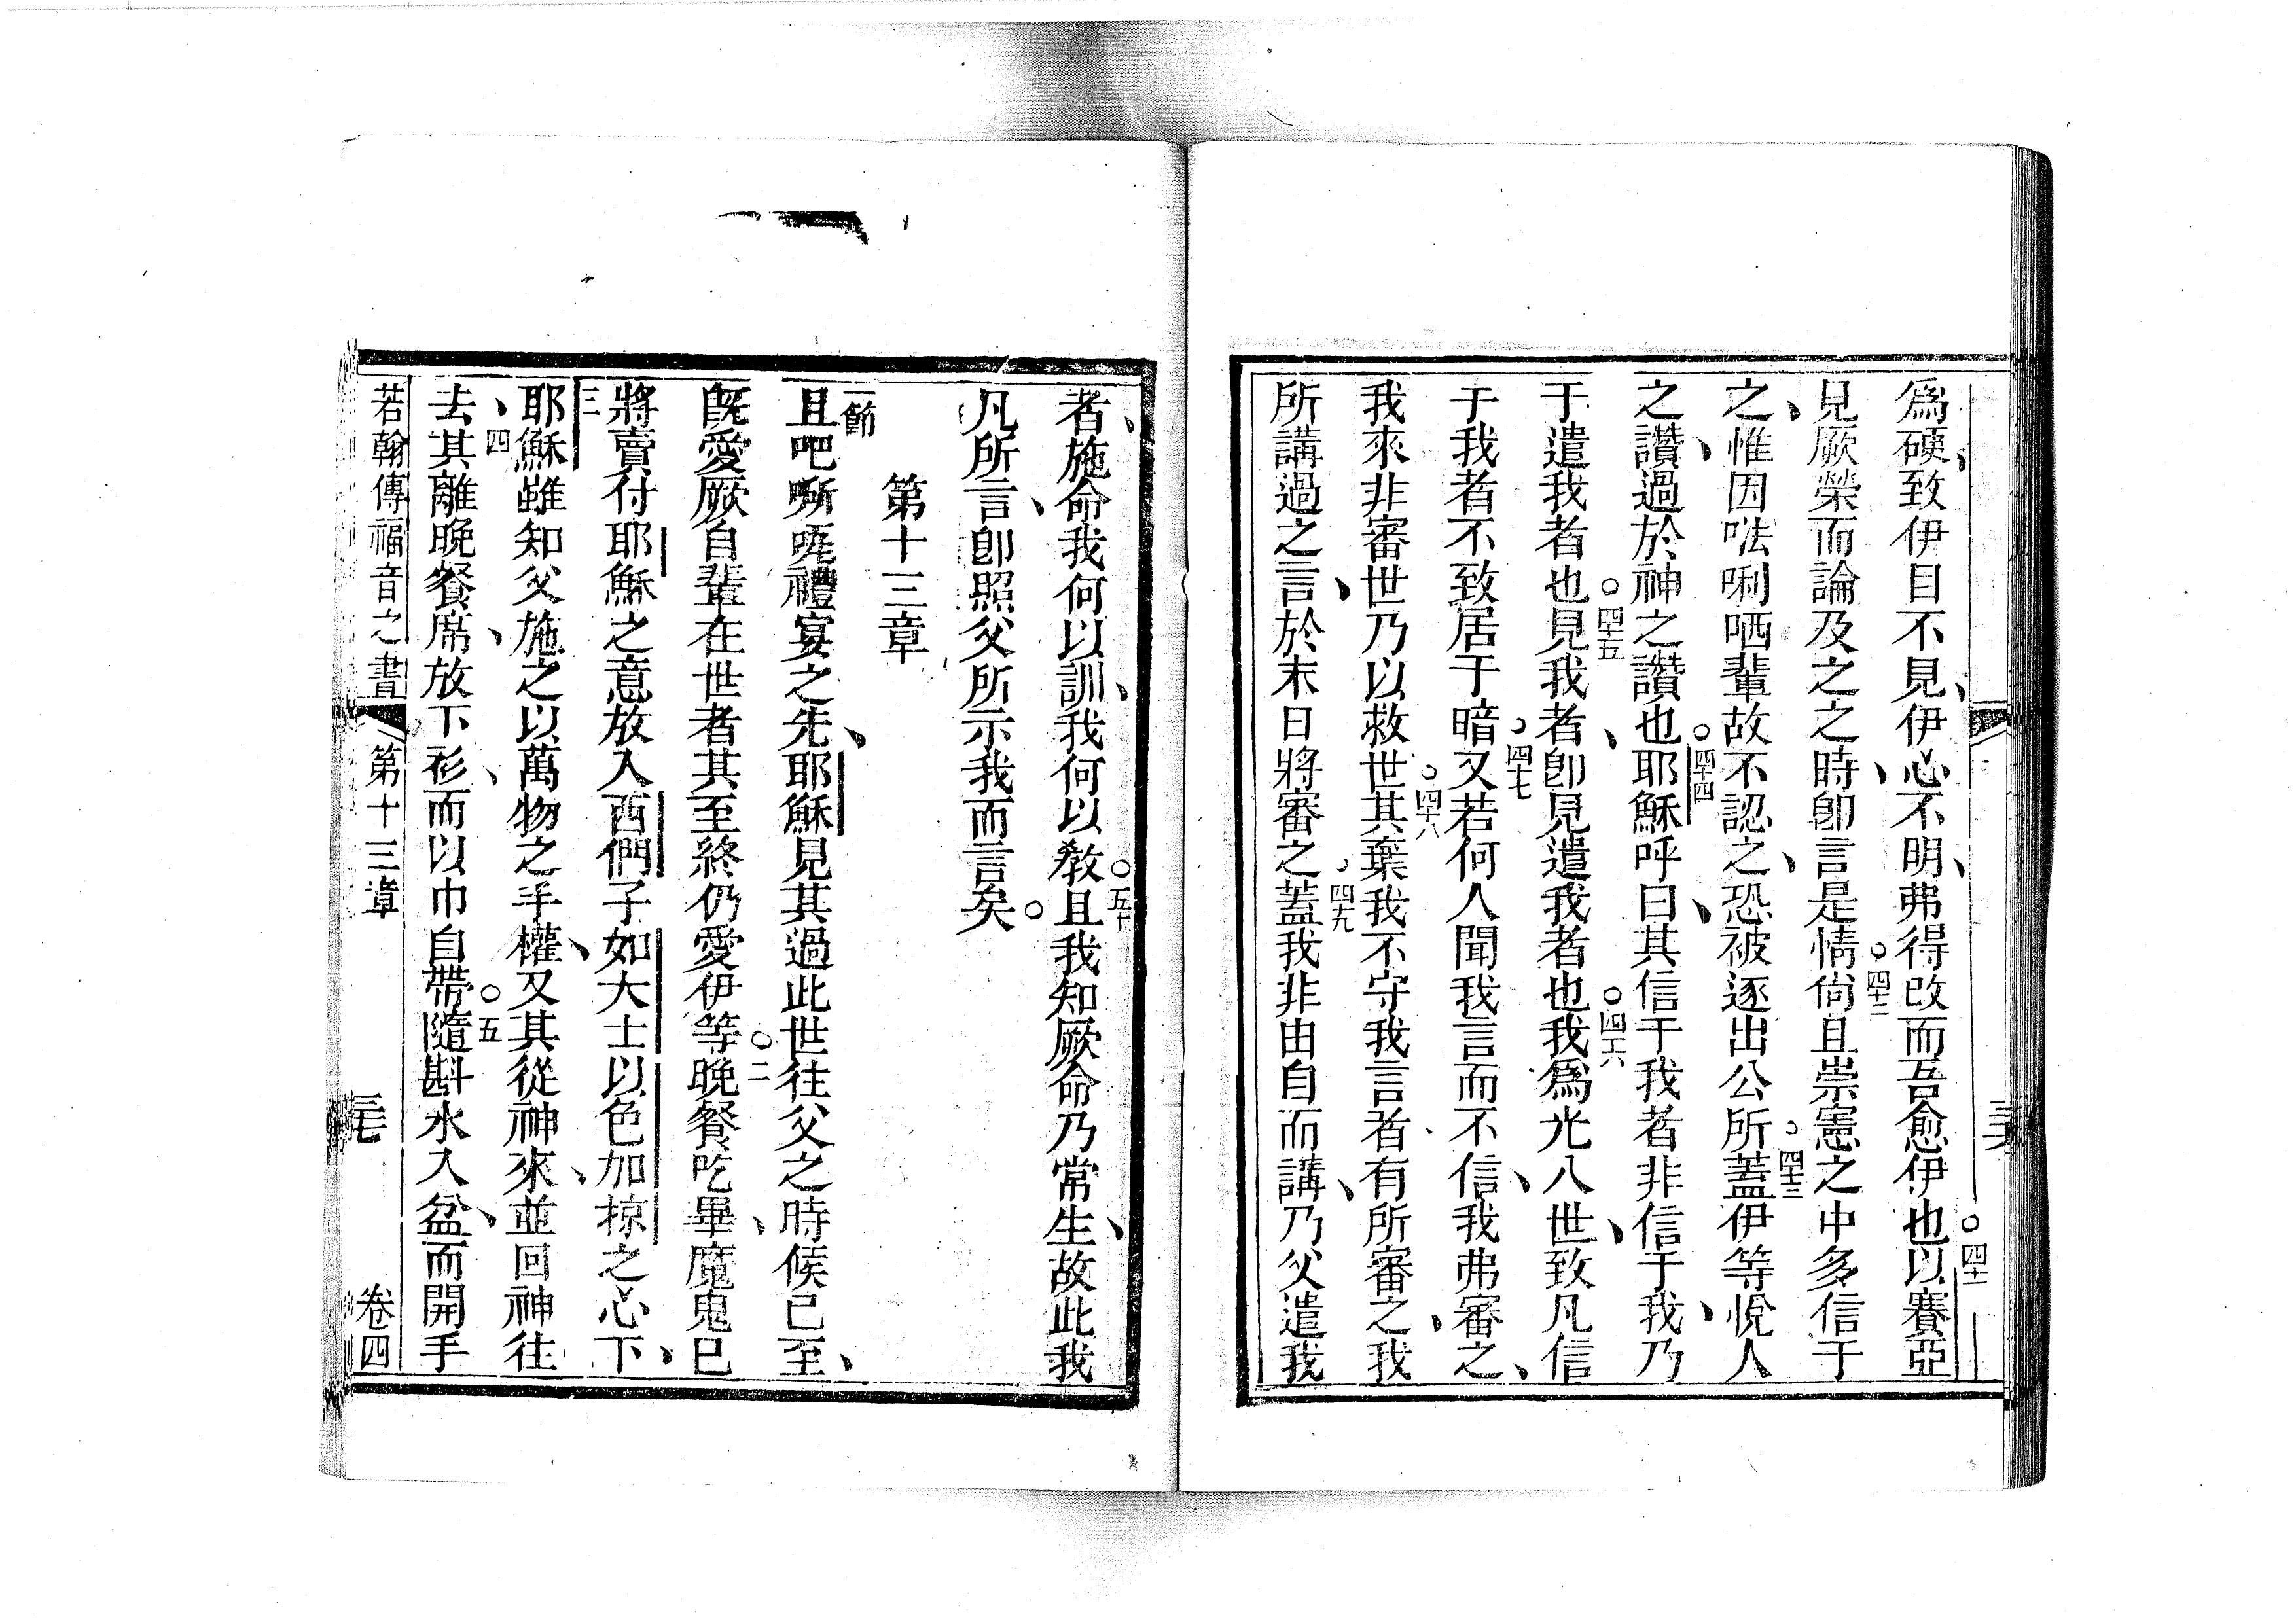 爲硬、致伊目不見、伊心不明、弗得改而吾愈伊也○四十一以賽亞
見厥榮而論及之之時、卽言是情○四十二尙且崇憲之中多信于
之、惟因𠵽唎哂輩故不認之、恐被逐出公所○四十三蓋伊等悅人
之讚、過於神之讚也○四十四耶穌呼曰、其信于我者非信于我、乃
于遣我者也○四十五見我者、卽見遣我者也○四十六我爲光入世、致凡信
于我者不致居于暗○四十七又若何人聞我言而不信、我弗審之、
我來非審世乃以救世○四十八其棄我不守我言者、有所審之、我
所講過之言、於末日將審之○四十九蓋我非由自而講、乃父遣我
者、施命我何以訓、我何以教○五十且我知厥命乃常生、故此我
凡所言、卽照父所示我而言矣○
第十三章
一節且吧嘶𠵽禮宴之先、耶穌見其過此世往父之時候已至、
旣愛厥自輩在世者其至終仍愛伊等○二晚餐吃畢、魔鬼已
將賣付耶穌之意放入西們子如大士以色加掠之心下、
三耶穌雖知父施之以萬物之手權、又其從神來、並回神往、
四去其離晚餐席、放下衫、而以巾自帶○五隨斟水入盆、而開手
若翰傳福音之書 第十三章 三七 卷四